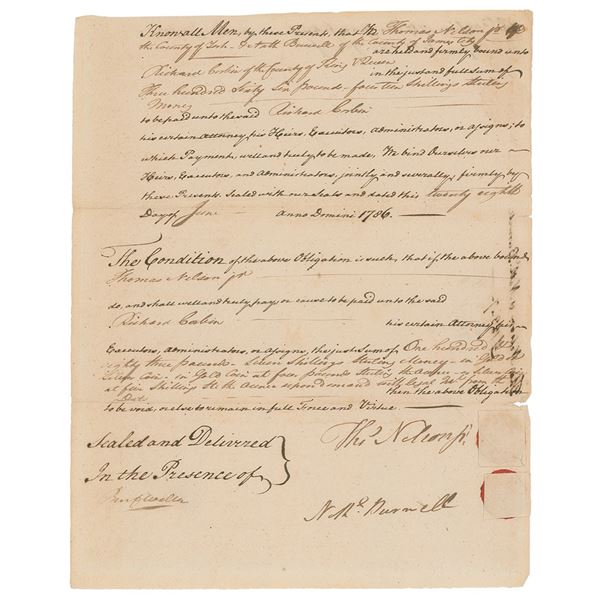 Know all Men, by these Presents, that We Thomas Nelson jr of
the County of York & Nath Burwell of the County of James City
are held and firmly bound unto
Richard Corbin of the County of King & Queen
in the just and full Sum of
Three hundred Sixty Six Pounds fourteen Shillings Sterling
Money
to be paid unto the said Richard Corbin
his certain Attorney, his Heirs, Executors, Administrators, or Assigns; to
which Payment, well and truly to be made, We bind Ourselves our
Heirs, Executors, and Administrators, jointly and severally, firmly, by
these Presents. Sealed with our Seals and dated this twenty eighth
Day of June Anno Domini 1786.
The Condition of the above Obligation is such, that if the above bound
Thomas Nelson jr
do, and shall well and truly, pay, or cause to be paid unto the said
Richard Corbin his certain Attorney, his
Executors, Administrators, or Assigns, the just Sum of One hundred &
eighty three pounds Seven Shillings Sterling Money in Gold or
Silver Coin in Gold Coin at four pounds Sterling the Ounce Silver Coin
at five Shillings the Ounce upon demand with legal from the
then the above Obligation
to be void, or else to remain in full Force and Virtue.
Sealed and Delivered
In the Presence of
Ben Waller
Thos Nelson jr.
Nth. Burwell